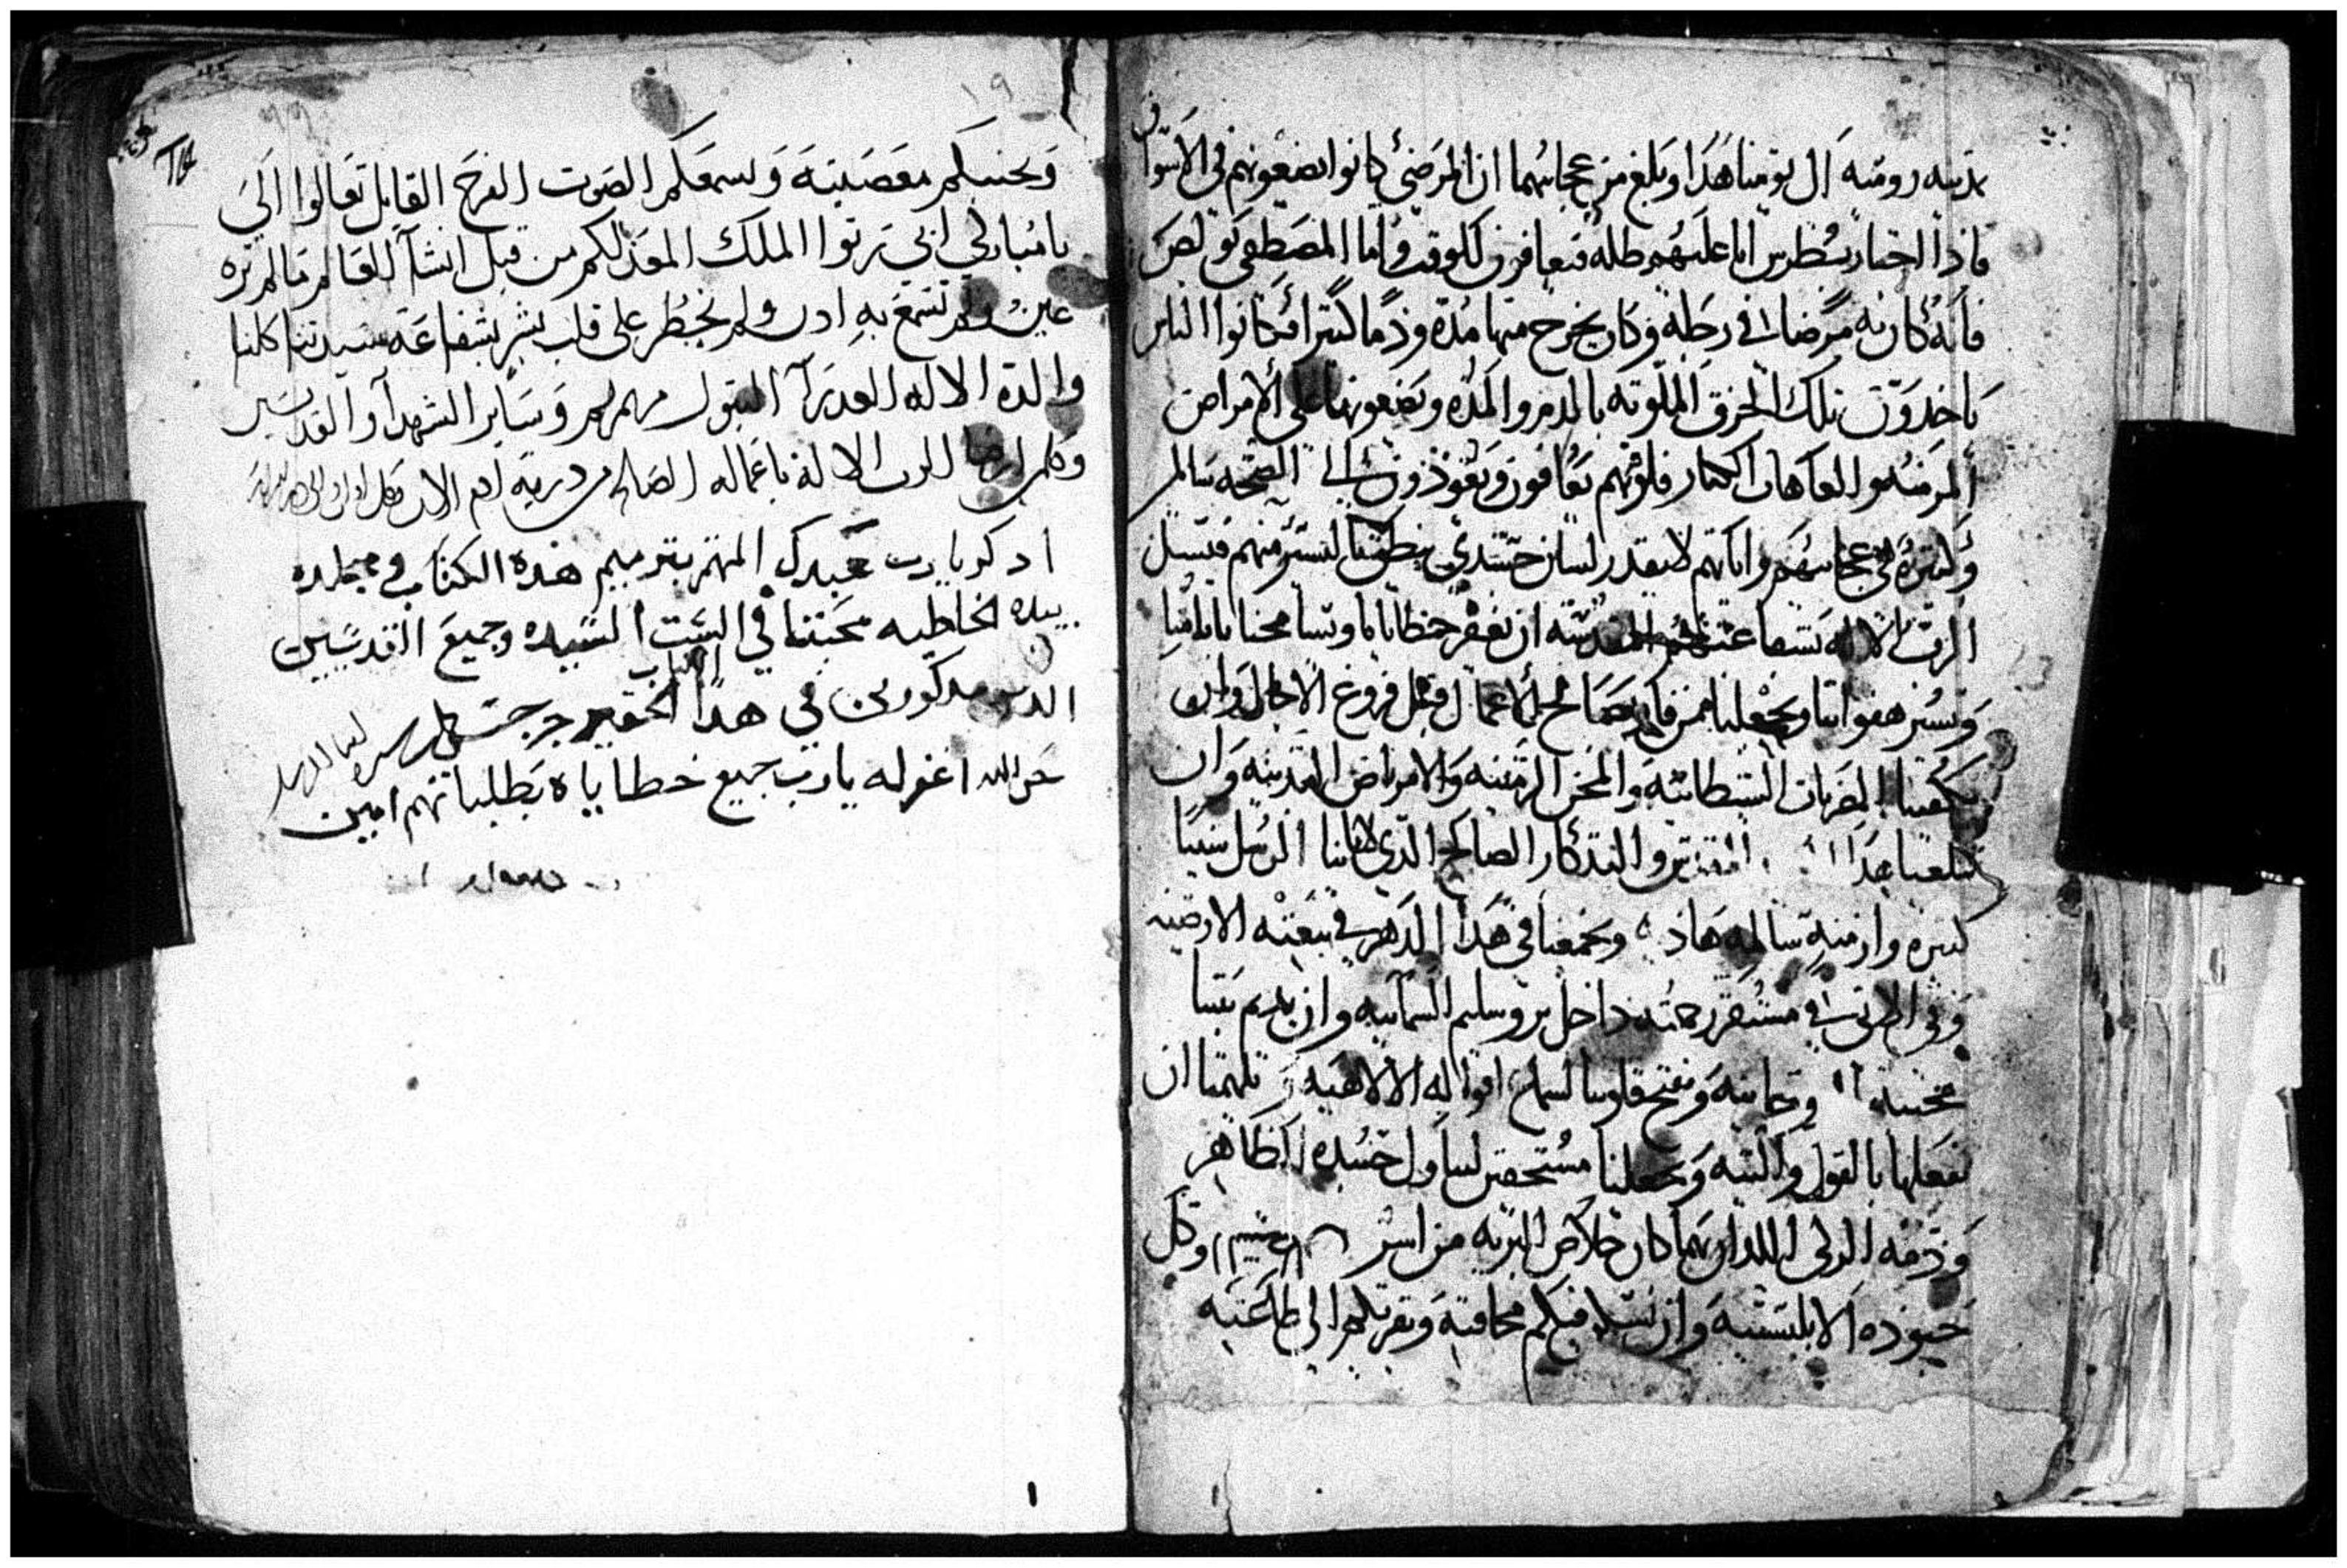 مدينه روميه الي يومنا هذا وبلغ من عجايبهما ان المرضي كانوا يضعونهم في الاسواق
فاذا اجتاز بطرس اما عليهم ظله فيعافون للوقت واما المصطفي بولص
فانه كان به مرضا في رجله وكان يخرج منها مده ودما كثيرا فكانوا الناس
ياخدون تلك الخرق الملوثه بالدم والمده ويضعونها علي الامراض
المزمنه والعاهات الكبار فلوقتهم يعافون ويعودون الي الصحه سالمين
ولكثرة عجايبهم واياتهم لا يقدر لسان جسداني ينطق باليسير منهم فنسل
الرب الاله بشفاعتهم المقدسه ان يغفر خطايانا ويسامحنا باثامنا
ويستر هفواتنا ويجعلنا ممن فاز بصالح الاعمال قبل فروغ الاجال وان
يكفينا الضربات الشيطانيه والمحن الزمنيه والامراض البدنيه وان
يبلغنا هذا التذكار الصالح الذي لابائنا الرسل سنينا
كثيره وازمنه سالمه هاديه ويجمعنا في هذا الدهر في بيعته الارضيه
وفي الاتي في مستقر رحمته داخل يروسليم السمائيه وان يديم بيننا
محبته ويفتح قلوبنا لسماع اقواله الالاهيه ويلهمنا ان
نفعلها بالقول والنيه ويجعلنا مستحقين لتناول جسده الطاهر
ودمه الزكي اللدان بهما كان خلاص البريه من اسر وكل
جنوده الابليسيه وان يسكن فيكم مخافته ويقربكم الي طاعته
١٩
ويجنبكم معصيته ويسمعكم الصوت الفرح القايل تعالوا الي
يا مباركي ابي رتوا الملك المعد لكم من قبل انشاء العالم ما لم تره
عين ولم تسمع به ادن ولم يخطر على قلب بشر بشفاعة سيدتنا كلنا
والدة الاله العدراء البتول مرتمريم وساير الشهدا والقديسين
وكلمن ارضا الرب الاله باعماله الصالحه من درية ادم الان وكل اوان
ادكر يارب عبدك المهتم بترميم هذه الكتاب في مجلده
بيده الخاطيه محبتنا في الست السيده وجميع القديسين
الدين مدكورين في هدا الكتاب الحقير جرجس
اغفر له يارب جميع خطاياه بطلباتهم امين